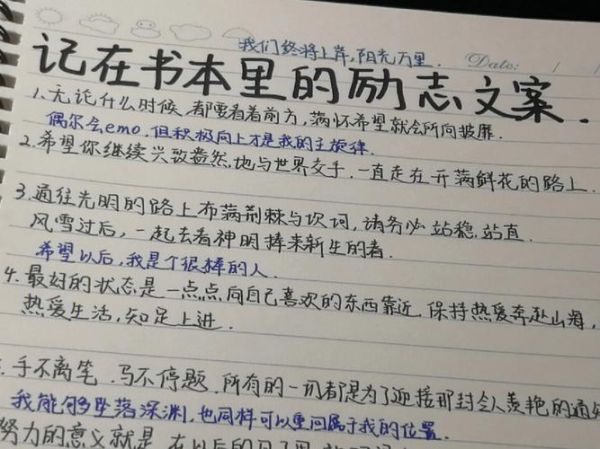 我们终将上岸,阳光万里.
Date: / /
记在书本里的励志文案.
1.无论什么时候,都要看着前方,满怀希望就会所向披靡.
偶尔会emo.但积极向上才是我的主旋律.
2.希望你继续兴致盎然地与世界交手.一直走在开满鲜花的路上.
3.通往光明的路上布满荆棘与坎坷,请务必站稳.站直.
风雪过后,一起去看神明捧来新生的
希望以后,我是个很棒的人.
4.最好的状态是一点点向自己喜欢的东西靠近.保持热爱奔赴山海,
热爱生活,知足上进.
手不离笔.马不停题.所有的一切都是为了迎接那封令人羡艳的通知
我能够坠落深渊,也同样可以重回属于我的位置.
努力的意义就是 在以后的日子里